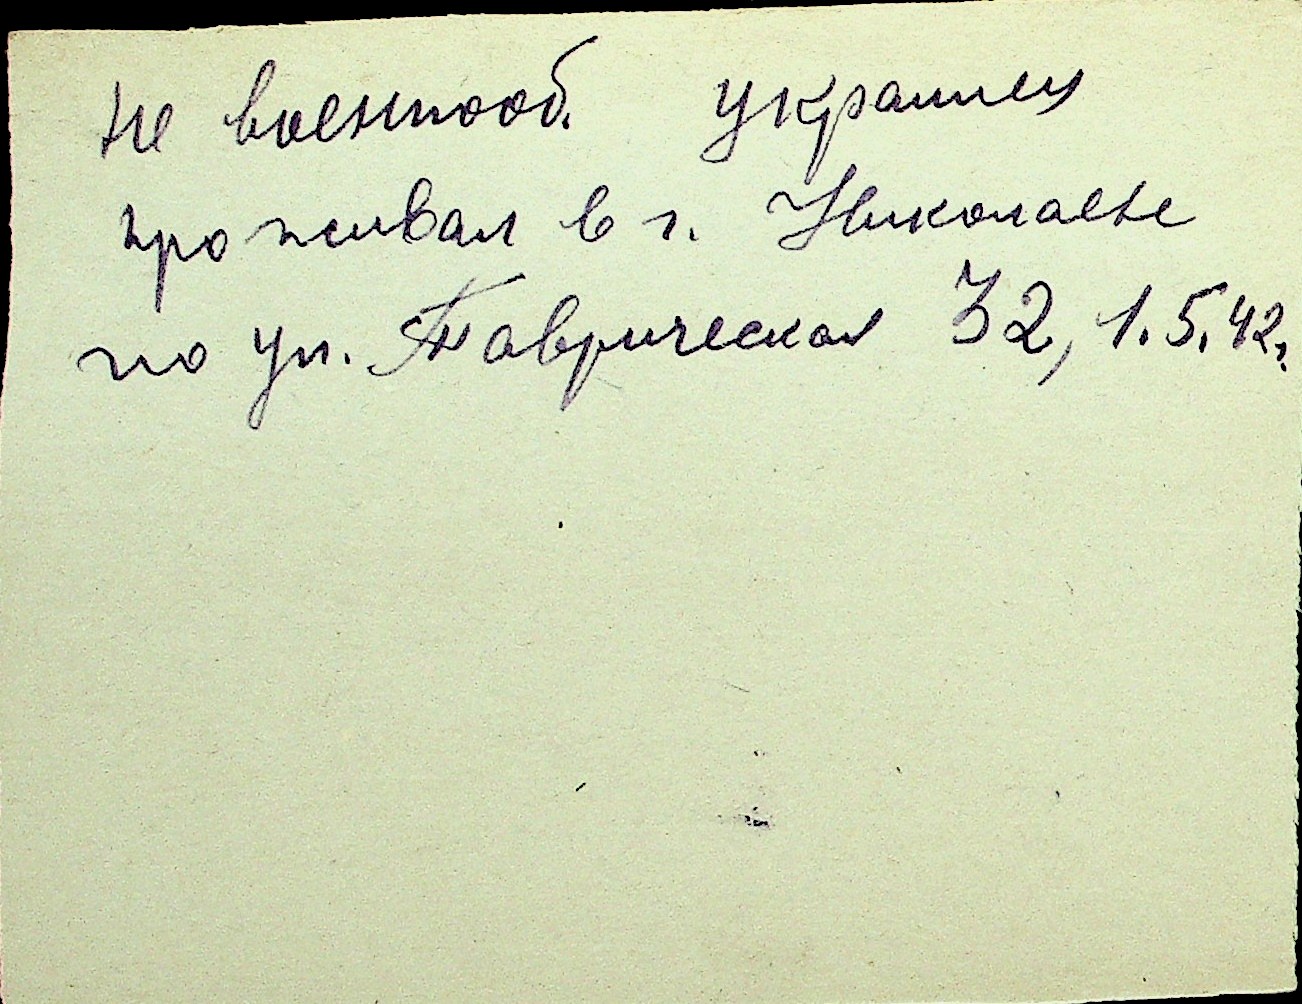 Не военнооб. украинец
проживал в г. Николаеве
по ул. Таврическая 32, 1.5.42.